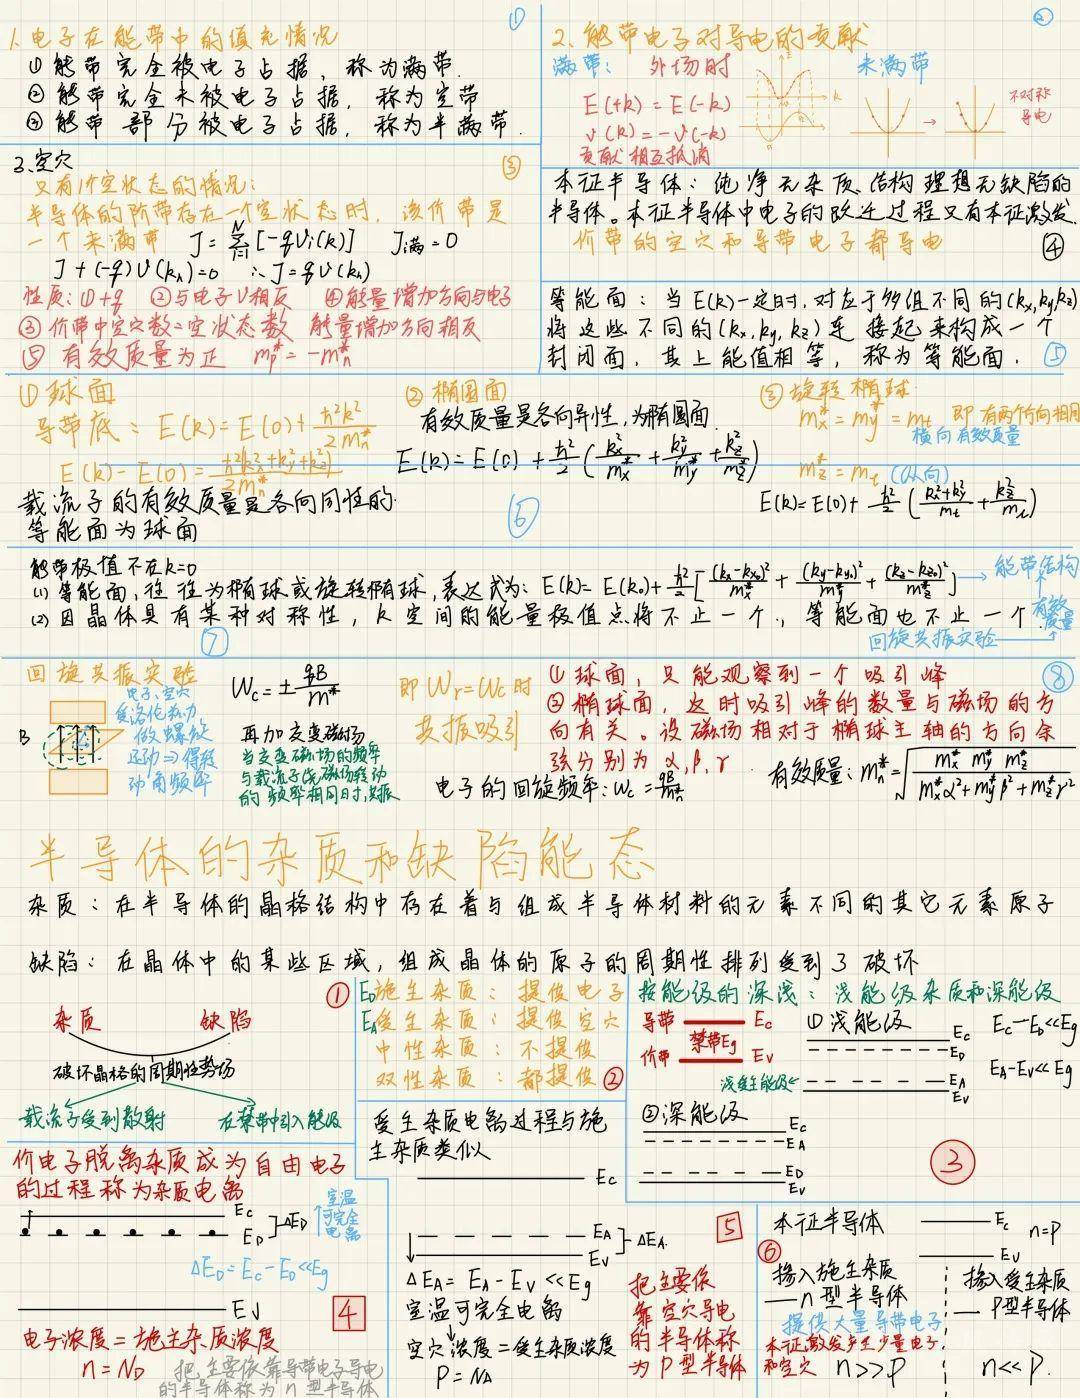 ①
1. 电子在能带中的填充情况
① 能带完全被电子占据，称为满带.
② 能带完全未被电子占据，称为空带
③ 能带部分被电子占据，称为半满带.
②
2、能带电子对导电的贡献
满带： 外场时
E(+k) = E(-k)
v(k) = -v(-k)
贡献相互抵消
未满带
E
k
不对称
导电
3、空穴
③
只有1个空状态的情况：
半导体的价带存在一个空状态时，该价带是
一个未满带 J = Σ [-qVi(k)] J满 = 0
J + (-q)V(kn) = 0 ∴ J = qV(kn)
性质：① +q ② 与电子V相反 ④ 能量增加方向与电子
③ 价带中空穴数=空状态数 能量增加方向相反
⑤ 有效质量为正 mp* = -mn*
本征半导体：纯净无杂质、结构理想无缺陷的
半导体。本征半导体中电子的跃迁过程只有本征激发.
价带的空穴和导带电子都导电
④
等能面：当E(k)一定时，对应于多组不同的(kx,ky,kz)
将这些不同的(kx,ky,kz)连接起来构成一个
封闭面，其上能值相等，称为等能面. ⑤
① 球面
导带底：E(k) = E(0) + ħ²k²/2mn*
E(k) - E(0) = ħ²(kx²+ky²+kz²)/2mn*
载流子的有效质量是各向同性的.
等能面为球面
② 椭圆面
有效质量是各向异性，为椭圆面.
E(k) = E(0) + ħ²/2 (kx²/mx* + ky²/my* + kz²/mz*)
⑥
③ 旋转椭球
mx* = my* = mt 即有两个方向相同
横向有效质量
mz* = mt (纵向)
E(k) = E(0) + ħ²/2 (kx²+ky²/mt + kz²/ml)
能带极值不在k=0
(1) 等能面，往往为椭球或旋转椭球，表达式为：E(k) = E(k0) + ħ²/2 [(kx-kx0)²/mx* + (ky-ky0)²/my* + (kz-kz0)²/mz*] → 能带结构
(2) 因晶体具有某种对称性，k空间的能量极值点将不止一个，等能面也不止一个. 有效质量
⑦
回旋共振实验
回旋共振实验
B
电子、空穴
受洛伦兹力
做螺旋
运动⇒得转
动角频率
Wc = ± qB/m*
再加交变磁场
当交变磁场的频率
与载流子磁场转动
的频率相同时，共振
即Wr=Wc时
共振吸引
① 球面，只能观察到一个吸引峰
⑧
② 椭球面，这时吸引峰的数量与磁场的方
向有关。设磁场相对于椭球主轴的方向余
弦分别为 α, β, γ
有效质量：mn* = √(mx* my* mz* / mx*α²+my*β²+mz*γ²)
电子的回旋频率：Wc = qB/mn*
半导体的杂质和缺陷能态
杂质：在半导体的晶格结构中存在着与组成半导体材料的元素不同的其它元素原子
缺陷：在晶体中的某些区域，组成晶体的原子的周期性排列受到了破坏
①
杂质 缺陷
破坏晶格的周期性势场
载流子受到散射 在禁带中引入能级
ED施主杂质：提供电子
EA受主杂质：提供空穴
中性杂质：不提供
双性杂质：都提供 ②
按能级的深浅：浅能级杂质和深能级
导带 Ec
禁带Eg
价带 Ev
① 浅能级
Ec
ED
EA
Ev
Ec-ED<<Eg
EA-Ev<<Eg
浅受主能级
② 深能级
Ec
EA
ED
Ev
③
价电子脱离杂质成为自由电子
的过程称为杂质电离
Ec
ED
ΔED
室温
可完全
电离
ΔED = Ec - ED << Eg
EV
4
电子浓度 = 施主杂质浓度
n = ND
把主要依靠导带电子导电
的半导体称为n型半导体
受主杂质电离过程与施
主杂质类似
Ec
EA
Ev
ΔEA
5
ΔEA = EA - EV << Eg
室温可完全电离
空穴浓度=受主杂质浓度
P = NA
把主要依
靠空穴导电
的半导体称
为P型半导体
⑥
本征半导体
Ec
EV
n=P
掺入施主杂质
— n型半导体
提供大量导带电子
本征激发产生少量电子
和空穴 n>>P
掺入受主杂质
— P型半导体
n<<P.